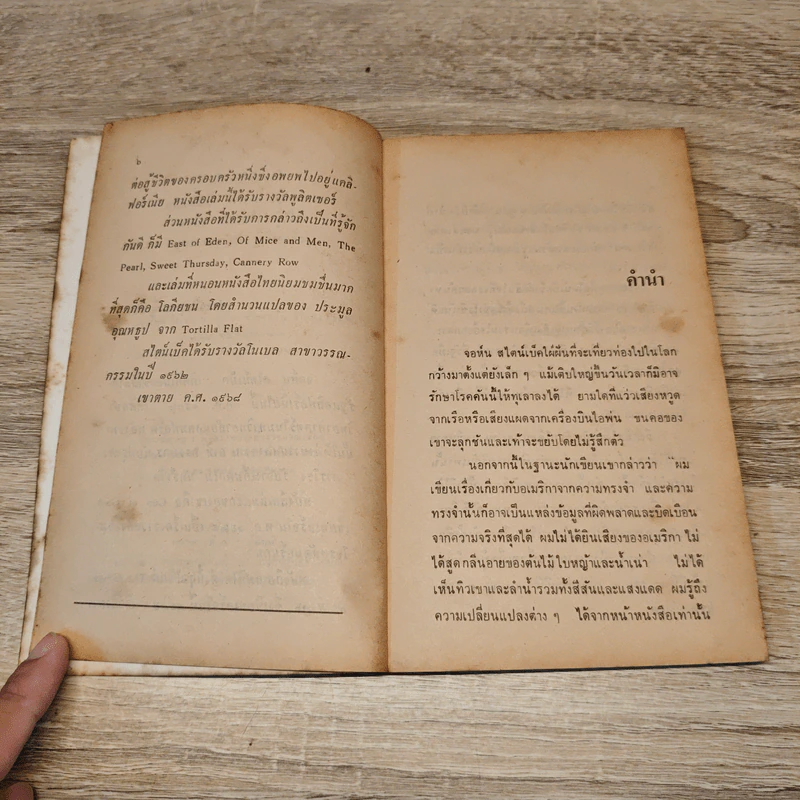 ๖
ต่อสู้ชีวิตของครอบครัวหนึ่งซึ่งอพยพไปอยู่แคลิ-
ฟอร์เนีย หนังสือเล่มนี้ได้รับรางวัลพูลิตเซอร์
ส่วนหนังสือที่ได้รับการกล่าวถึงเป็นที่รู้จัก
กันดี ก็มี East of Eden, Of Mice and Men, The
Pearl, Sweet Thursday, Cannery Row
และเล่มที่หนอนหนังสือไทยนิยมชมชื่นมาก
ที่สุดก็คือ โลกียชน โดยสำนวนแปลของ ประมูล
อุณหธูป จาก Tortilla Flat
สไตน์เบ็คได้รับรางวัลโนเบล สาขาวรรณ-
กรรมในปี ๑๙๖๒
เขาตาย ค.ศ. ๑๙๖๘
คำนำ
จอห์น สไตน์เบ็คใฝ่ฝันที่จะเที่ยวท่องไปในโลก
กว้างมาตั้งแต่ยังเล็ก ๆ แม้เติบใหญ่ขึ้นวันเวลาก็มิอาจ
รักษาโรคคันนี้ให้ทุเลาลงได้ ยามใดที่แว่วเสียงหวูด
จากเรือหรือเสียงแผดจากเครื่องบินไอพ่น ขนคอของ
เขาจะลุกชันและเท้าจะขยับโดยไม่รู้สึกตัว
นอกจากนี้ในฐานะนักเขียนเขากล่าวว่า "ผม
เขียนเรื่องเกี่ยวกับอเมริกาจากความทรงจำ และความ
ทรงจำนั้นก็อาจเป็นแหล่งข้อมูลที่ผิดพลาดและบิดเบือน
จากความจริงที่สุดได้ ผมไม่ได้ยินเสียงของอเมริกา ไม่
ได้สูดกลิ่นอายของต้นไม้ใบหญ้าและน้ำเน่า ไม่ได้
เห็นทิวเขาและลำน้ำรวมทั้งสีสันและแสงแดด ผมรู้ถึง
ความเปลี่ยนแปลงต่าง ๆ ได้จากหน้าหนังสือเท่านั้น